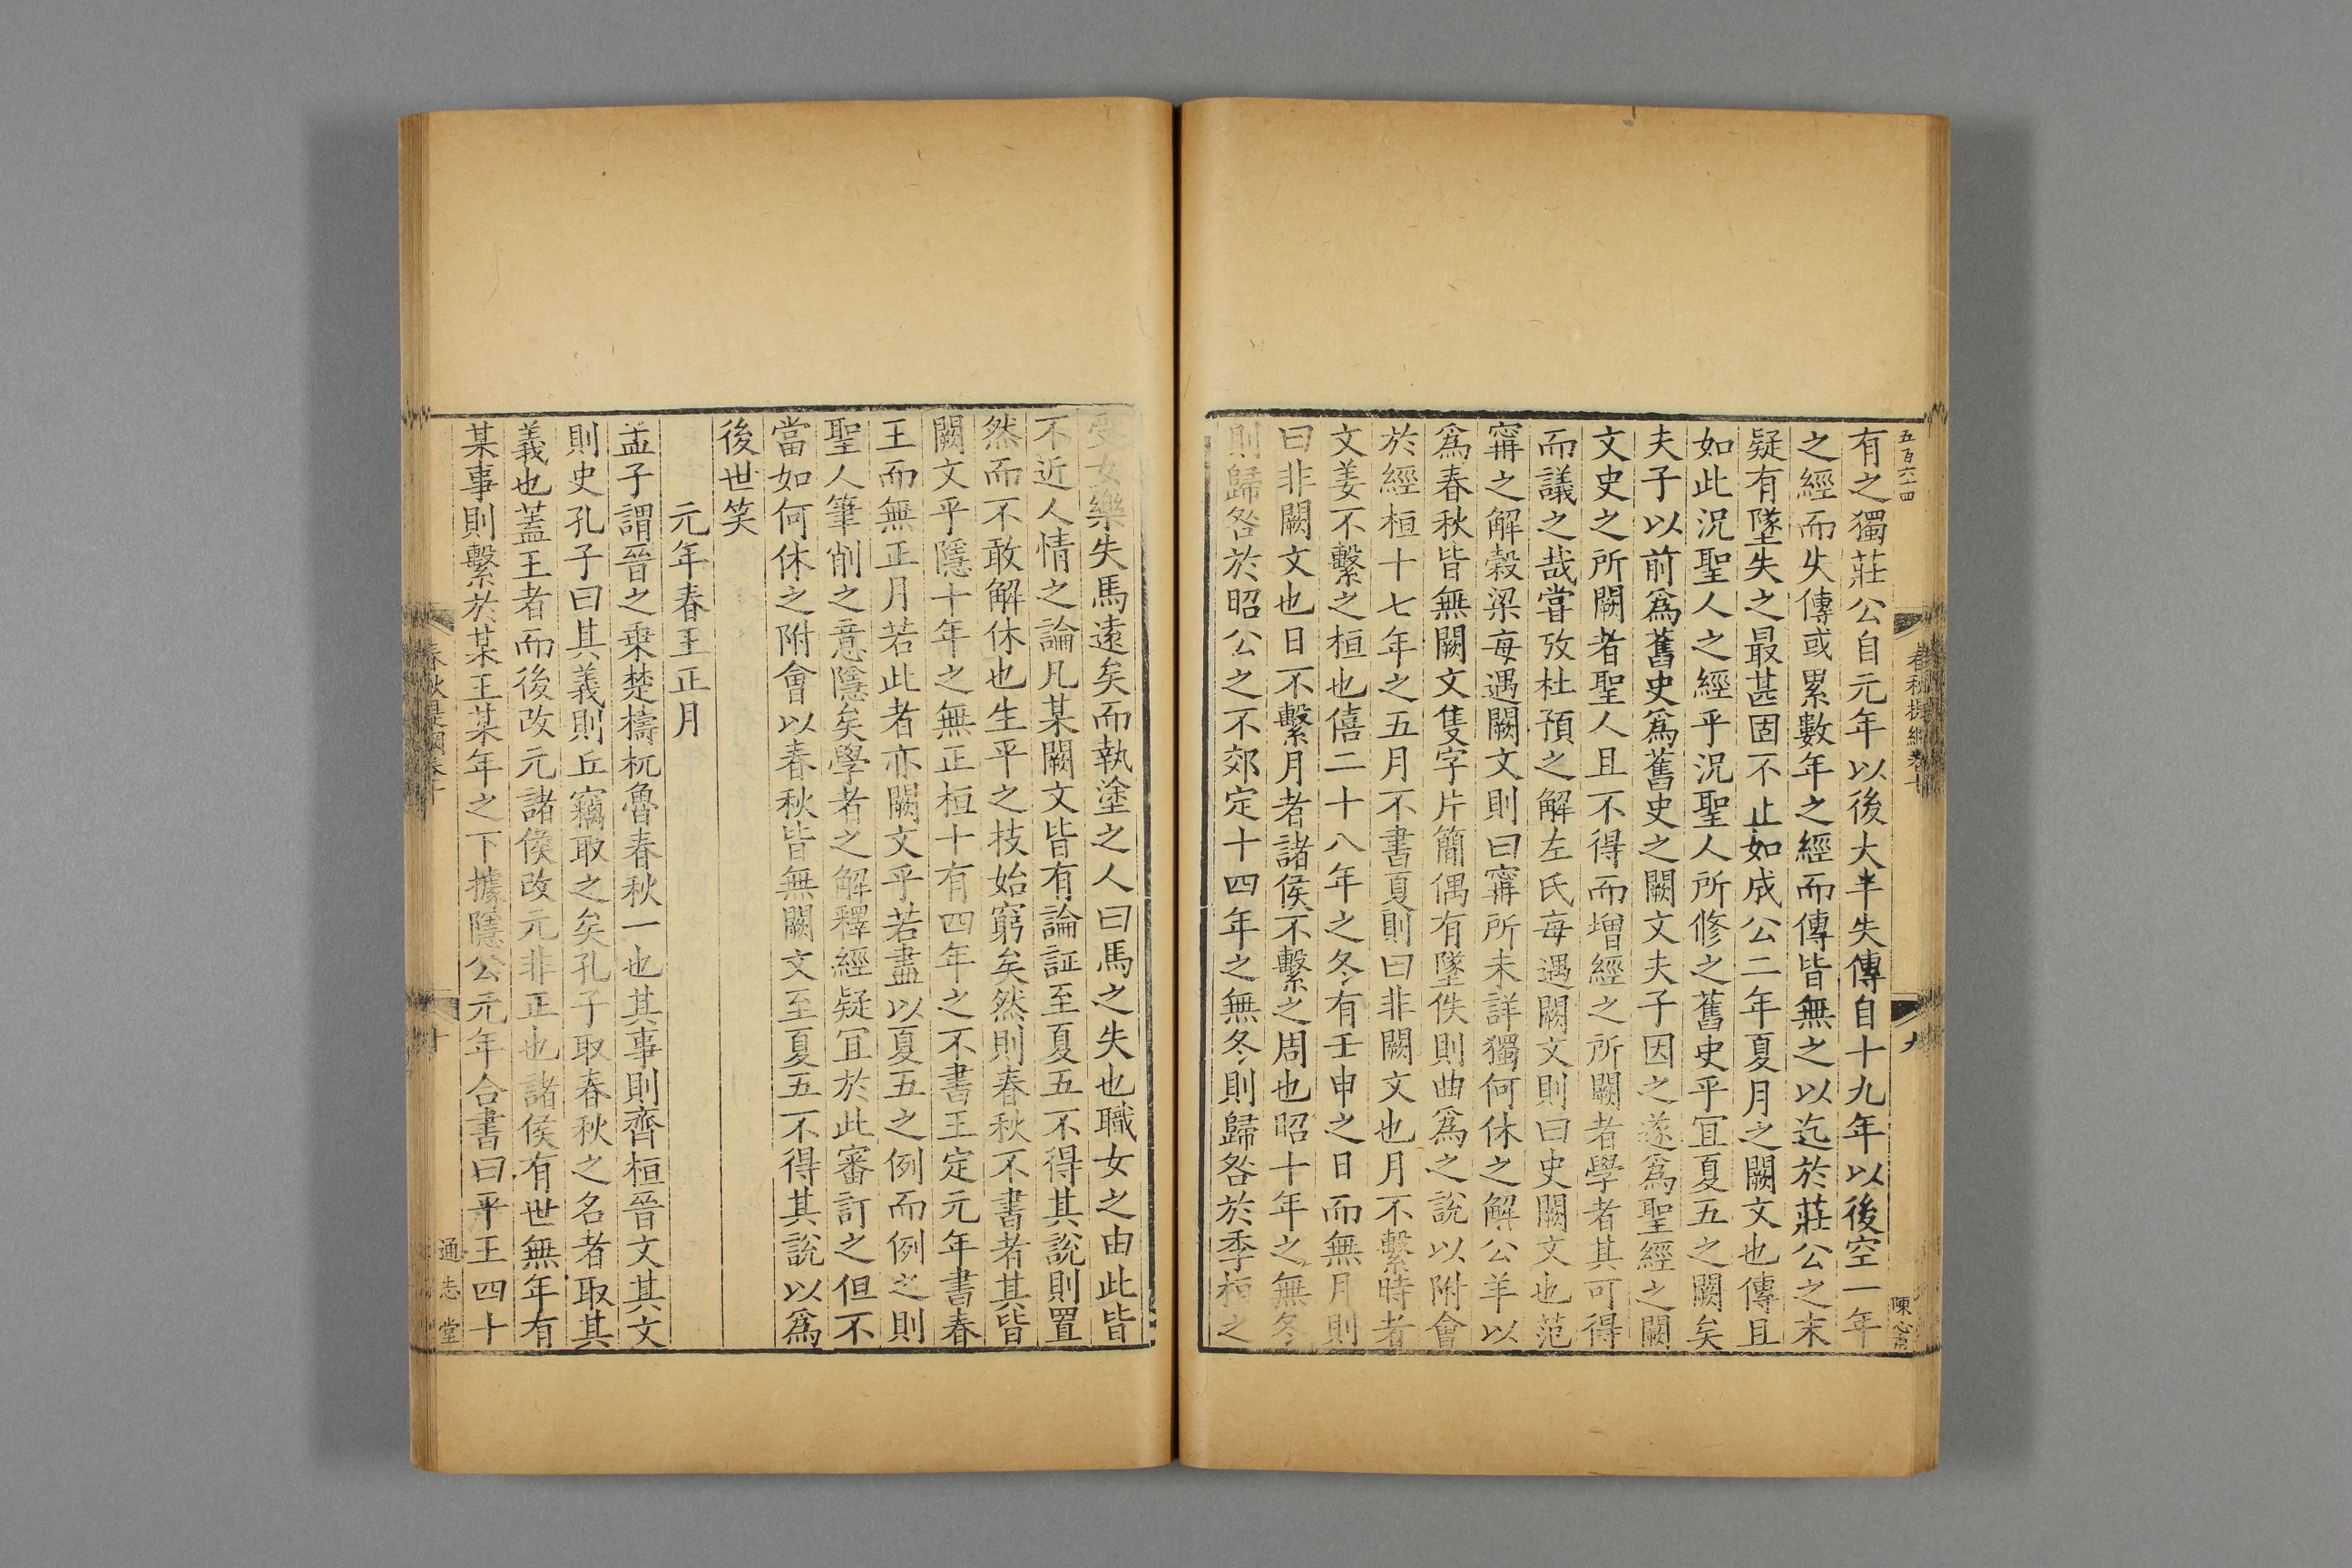 五百六十四
春秋提綱卷十
九
陳心甫
有之獨莊公自元年以後大半失傳自十九年以後空一年
之經而失傳或累數年之經而傳皆無之以迄於莊公之末
疑有墜失之最甚固不止如成公二年夏月之闕文也傳且
如此況聖人之經乎況聖人所修之舊史乎宜夏五之闕矣
夫子以前爲舊史爲舊史之闕文夫子因之遂爲聖經之闕
文史之所闕者聖人且不得而增經之所闕者學者其可得
而議之哉嘗攷杜預之解左氏每遇闕文則曰史闕文也范
寗之解穀梁每遇闕文則曰寗所未詳獨何休之解公羊以
爲春秋皆無闕文隻字片簡偶有墜佚則曲爲之說以附會
於經桓十七年之五月不書夏則曰非闕文也月不繫時者
文姜不繫之桓也僖二十八年之冬有壬申之日而無月則
曰非闕文也日不繫月者諸侯不繫之周也昭十年之無冬
則歸咎於昭公之不郊定十四年之無冬則歸咎於季桓之
受女樂失馬遠矣而執塗之人曰馬之失也職女之由此皆
不近人情之論凡某闕文皆有論証至夏五不得其說則置
然而不敢解休也生平之技始窮矣然則春秋不書者其皆
闕文乎隱十年之無正桓十有四年之不書王定元年書春
王而無正月若此者亦闕文乎若盡以夏五之例而例之則
聖人筆削之意隱矣學者之解釋經疑宜於此審訂之但不
當如何休之附會以春秋皆無闕文至夏五不得其說以爲
後世笑
元年春王正月
孟子謂晉之乗楚檮杌魯春秋一也其事則齊桓晉文其文
則史孔子曰其義則丘竊取之矣孔子取春秋之名者取其
義也蓋王者而後改元諸侯改元非正也諸侯有世無年有
某事則繫於某王某年之下據隱公元年合書曰平王四十
春秋提綱卷十
十
通志堂